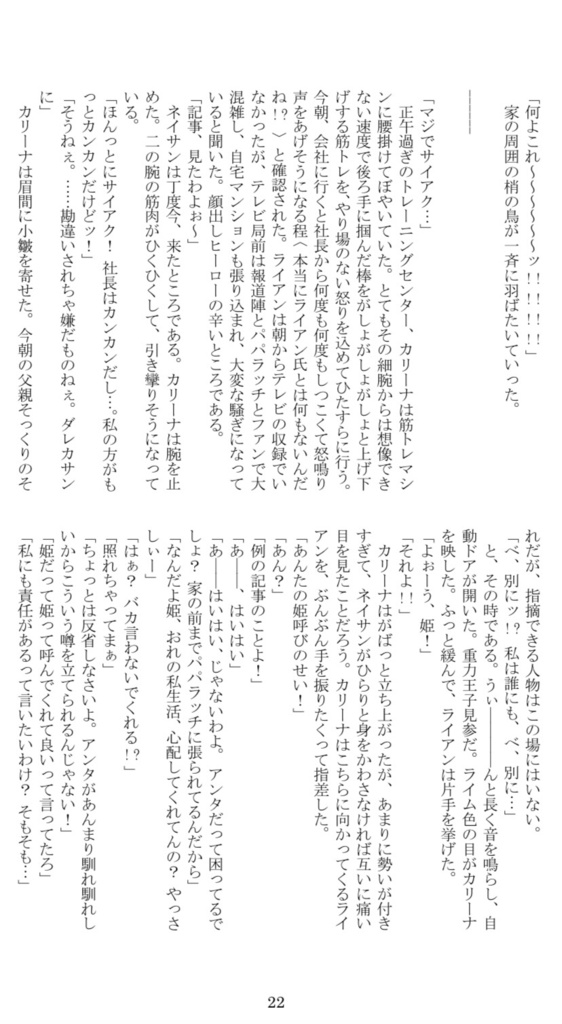 「何よこれ～～～～～～ッ!!!!!!」
家の周囲の梢の鳥が一斉に羽ばたいていった。
―――
「マジでサイアク…」
正午過ぎのトレーニングセンター、カリーナは筋トレマシ
ンに腰掛けてぼやいていた。とてもその細腕からは想像でき
ない速度で後ろ手に掴んだ棒をがしょがしょがしょと上げ下
げする筋トレを、やり場のない怒りを込めてひたすらに行う。
今朝、会社に行くと社長から何度も何度もしつこくて怒鳴り
声をあげそうになる程〈本当にライアン氏とは何もないんだ
ね!?〉と確認された。ライアンは朝からテレビの収録でい
なかったが、テレビ局前は報道陣とパパラッチとファンで大
混雑し、自宅マンションも張り込まれ、大変な騒ぎになって
いると聞いた。顔出しヒーローの辛いところである。
「記事、見たわよぉ～」
ネイサンは丁度今、来たところである。カリーナは腕を止
めた。二の腕の筋肉がひくひくして、引き攣りそうになって
いる。
「ほんっとにサイアク！　社長はカンカンだし…。私の方がも
っとカンカンだけどッ！」
「そうねぇ。……勘違いされちゃ嫌だものねぇ。ダレカサン
に」
カリーナは眉間に小皺を寄せた。今朝の父親そっくりのそ
れだが、指摘できる人物はこの場にはいない。
「べ、別にッ!?　私は誰にも、べ、別に…」
と、その時である。うぃ―――んと長く音を鳴らし、自
動ドアが開いた。重力王子見参だ。ライム色の目がカリーナ
を映した。ふっと緩んで、ライアンは片手を挙げた。
「よぉーう、姫！」
「それよ!!」
カリーナはがばっと立ち上がったが、あまりに勢いが付き
すぎて、ネイサンがひらりと身をかわさなければ互いに痛い
目を見たことだろう。カリーナはこちらに向かってくるライ
アンを、ぶんぶん手を振りたくって指差した。
「あんたの姫呼びのせい！」
「あん？」
「例の記事のことよ！」
「あ――、はいはい」
「あ――はいはい、じゃないわよ。アンタだって困ってるで
しょ？　家の前までパパラッチに張られてるんだから」
「なんだよ姫、おれの私生活、心配してくれてんの？　やっさ
しぃー」
「はぁ？　バカ言わないでくれる!?」
「照れちゃってまぁ」
「ちょっとは反省しなさいよ。アンタがあんまり馴れ馴れし
いからこういう噂を立てられるんじゃない！」
「姫だって姫って呼んでくれて良いって言ってたろ」
「私にも責任があるって言いたいわけ？　そもそも…」
22